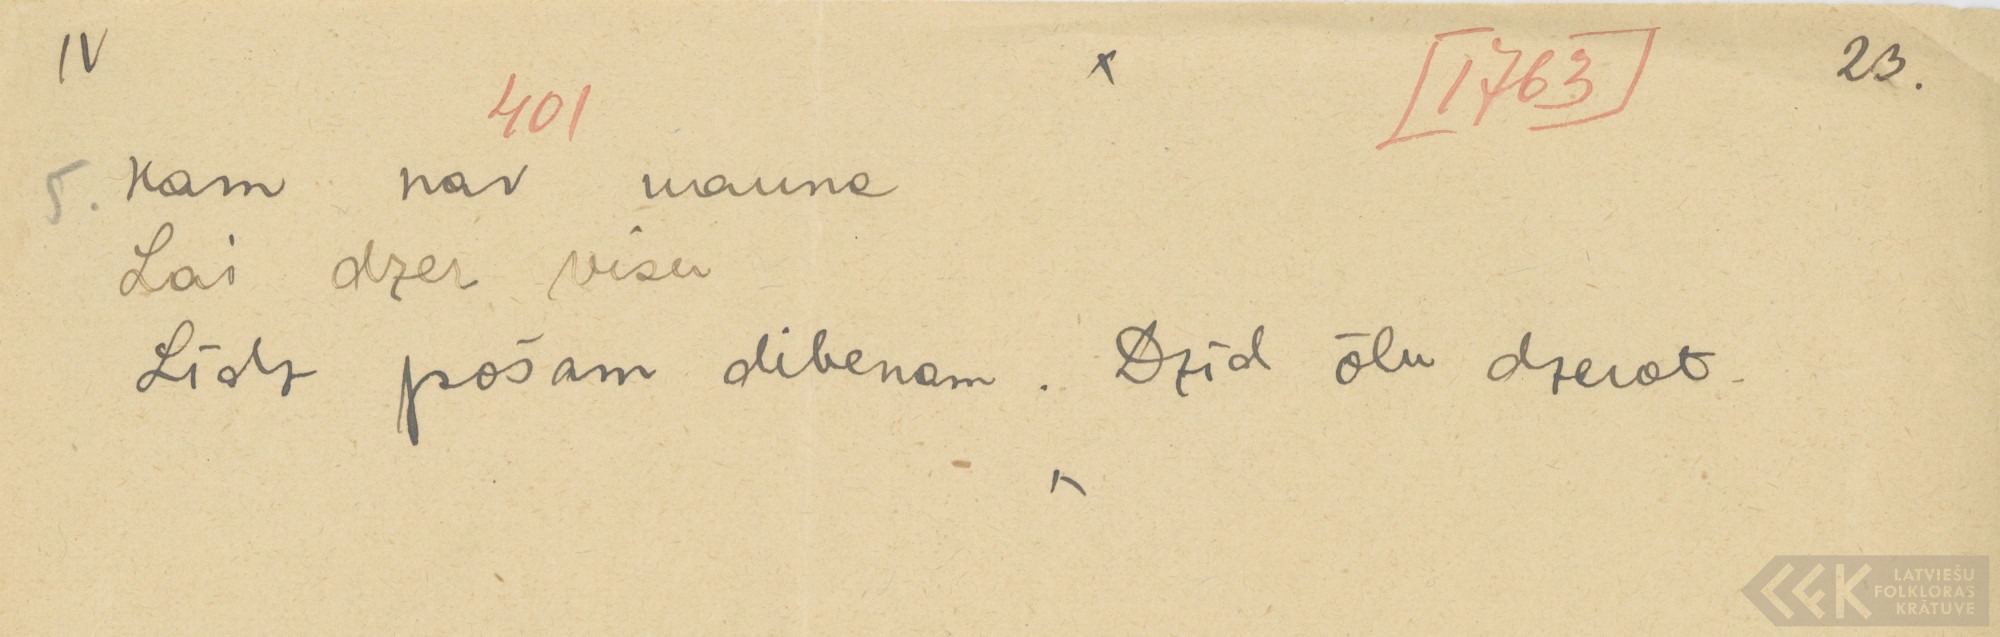 IV 401 x [1763] 23.
5. Kam nav mauna
Lai dzer visu
Līdz pošam dibenam. Dzīd ōlu dzerot.
LATVIEŠU
FOLKLORAS
KRĀTUVE